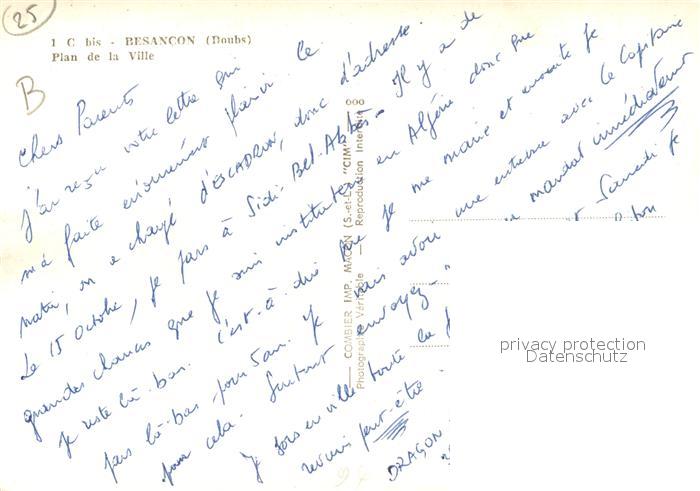 25
1 C bis - BESANÇON (Doubs)
Plan de la Ville
B
Chers Parents
J'ai reçu votre lettre qui
m'a faite énormément plaisir. Ce
matin, on a changé d'ESCADRON, donc d'adresse.
Le 15 Octobre, je pars à Sidi-Bel-Abbès. Il y a de
grandes chances que je suis instituteur en Algérie donc que
je reste là-bas. C'est-à-dire que je me marie et ensuite je
pars là-bas pour 5 ans. Je vais avoir une entrevue avec le Capitaine
pour cela. Surtout envoyez mandat immédiatement
Je sors en ville toute la Samedi je
reviens peut-être
DRAGON
COMBIER IMP. MACON (S.-et-L.) "CIM"
Photographie Véritable - Reproduction Interdite
privacy protection
Datenschutz